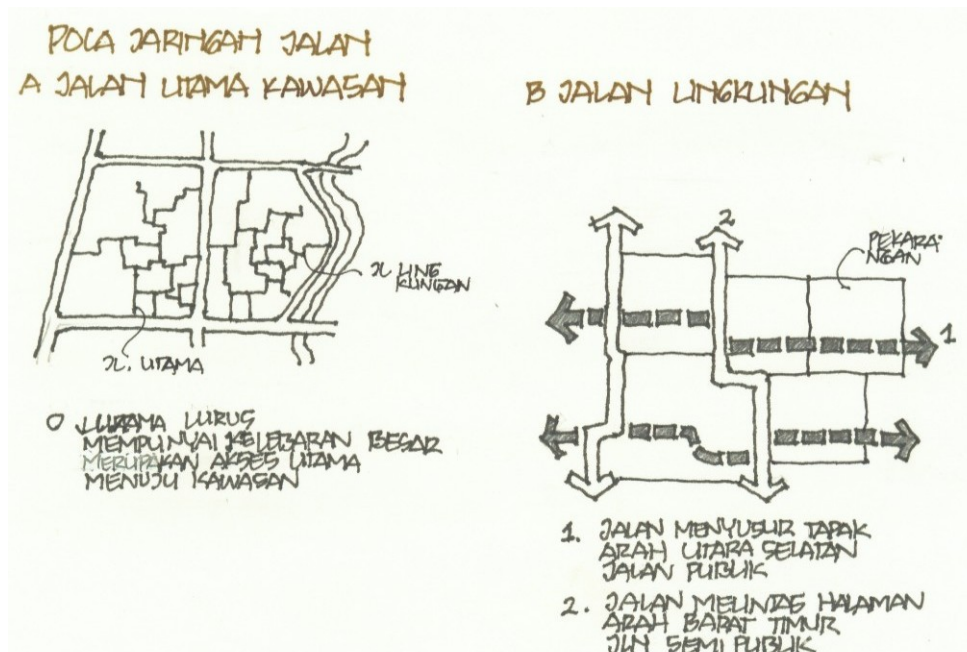 POLA JARINGAN JALAN
A JALAN UTAMA KAWASAN
JL LING
KUNGAN
JL. UTAMA
UTAMA LURUS
MEMPUNYAI KELEBARAN BESAR
MERUPAKAN AKSES UTAMA
MENUJU KAWASAN
B JALAN LINGKUNGAN
2
PEKARA-
NGAN
1
1. JALAN MENYUSUR TAPAK
ARAH UTARA SELATAN
JALAN PUBLIK
2. JALAN MELINTAS HALAMAN
ARAH BARAT TIMUR
JLN SEMI PUBLIK